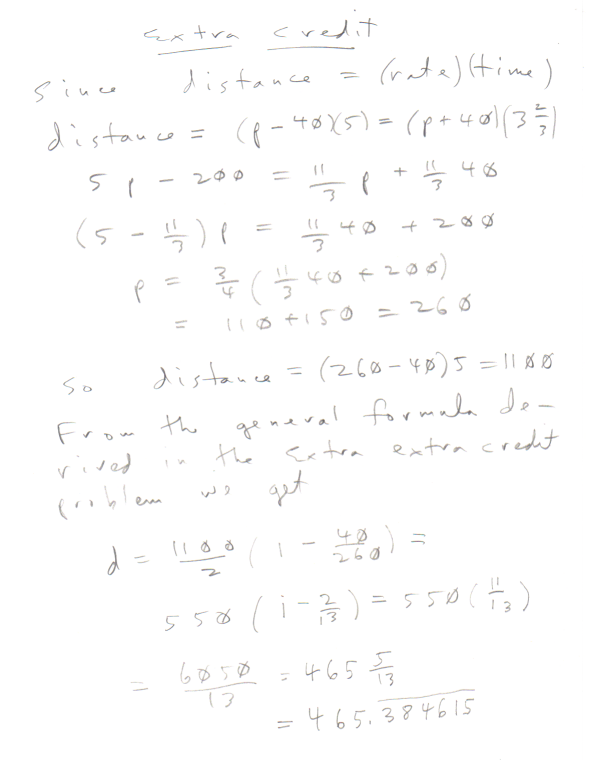 Extra Credit
Since distance = (rate)(time)
distance = (p - 40)(5) = (p + 40)(3 2/3)
5p - 200 = 11/3 p + 11/3 40
(5 - 11/3) p = 11/3 40 + 200
p = 3/4 (11/3 40 + 200)
= 110 + 150 = 260
So distance = (260 - 40) 5 = 1100
From the general formula de-
rived in the Extra extra credit
problem we get
d = 1100/2 (1 - 40/260) =
550 (1 - 2/13) = 550 (11/13)
= 6050/13 = 465 5/13
= 465.3̅8̅4̅6̅1̅5̅